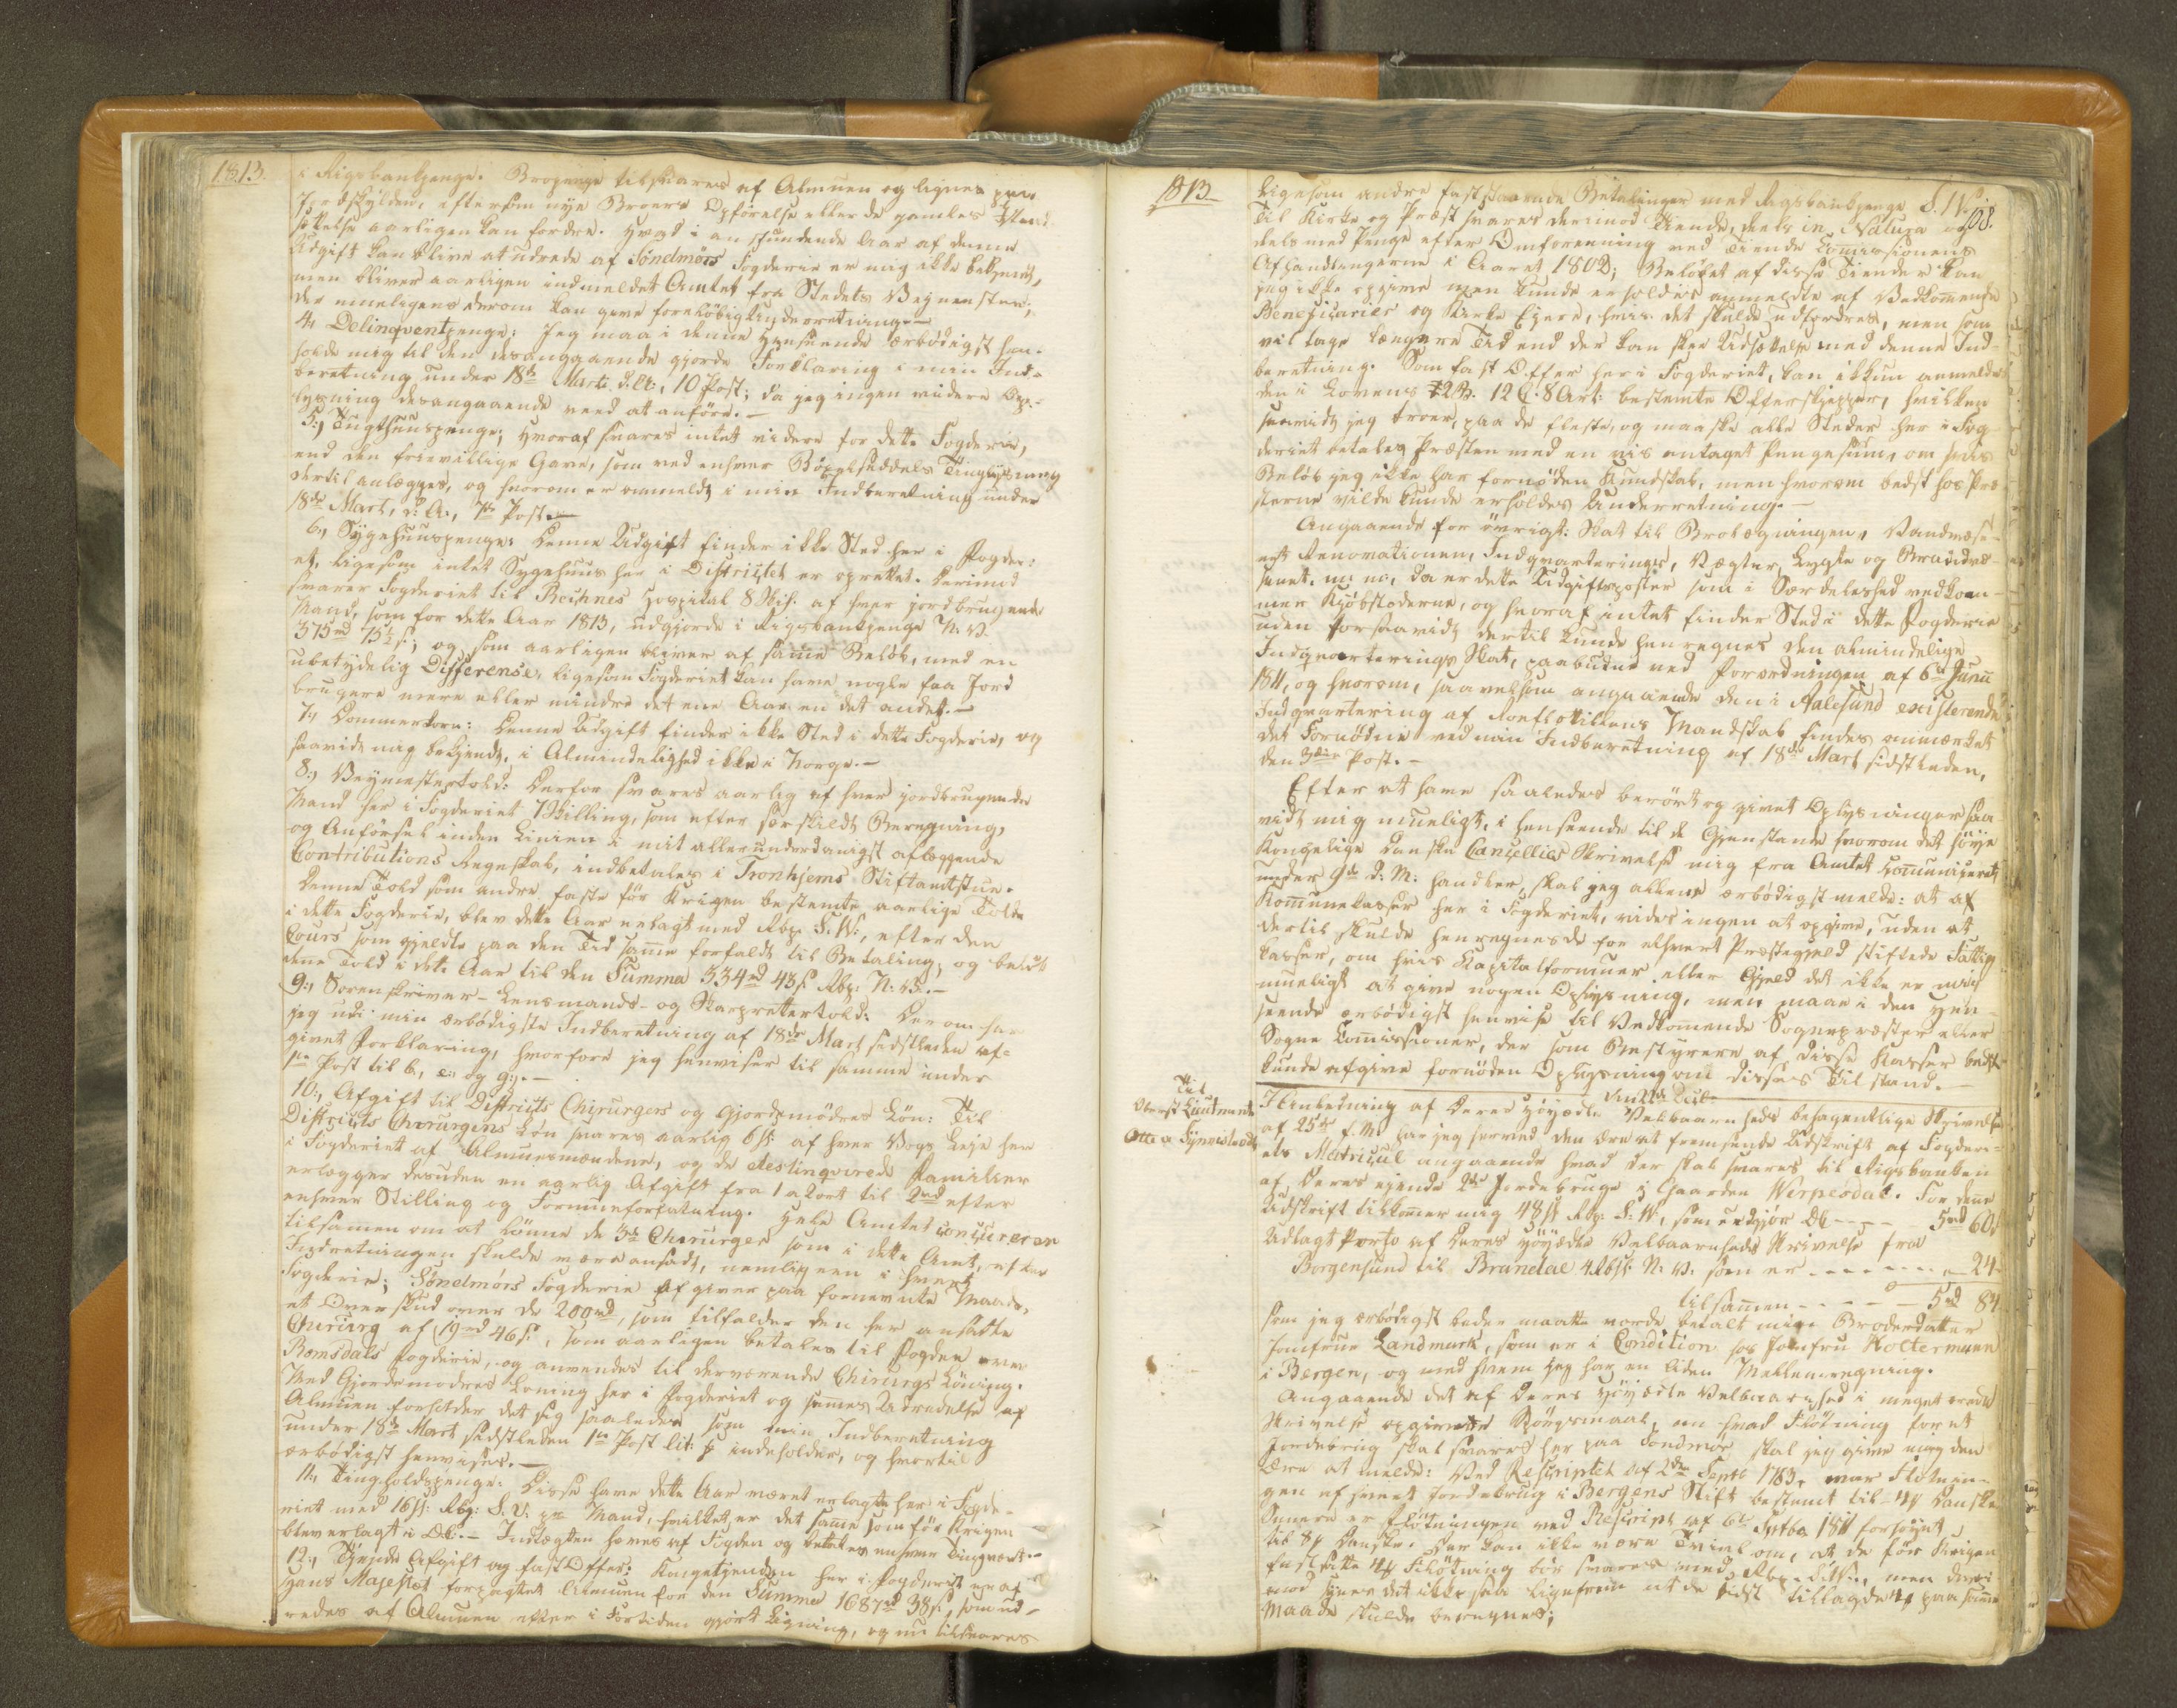 1813.
i Rigsbankpenge. Bropenge tilsvares af Almuen og lignes paa
Jordskylden, eftersom nye Broers Opförelse eller de gamles Istand-
sættelse aarligen kan fordre. Hvad i anstundende Aar af denne
Udgift kan blive at udrede af Söndmörs Fogderie er mig ikke bekjendt,
men bliver aarligen indmeldet Amtet fra Stedets Vejmester,
der mueligens derom kan give foreløbig Underretning.-
4., Delinqventpenge; Jeg maa i denne Henseende ærbødigst hen-
holde mig til den desangaaende gjorde Forklaring i min Ind-
beretning under 18de Marti d. A:, 10 Post; da jeg ingen videre Op-
lysning desangaaende veed at anføre.-
5., Tugthuuspenge; Hvoraf svares intet videre for dette Fogderie,
end den frievillige Gave, som ved enhver Bögselseddels Tinglysning
dertil anlægges, og hvorom er anmeldt i min Indberetning under
18de Mart, d: A:, 7de Post.-
6., Sygehuuspenge: Denne Udgift finder ikke Sted her i Fogderi-
et, ligesom intet Sygehuus her i Districtet er oprettet. Derimod
svarer Fogderiet til Rechnes Hospital 8 Sk. af hver jordbrugende
Mand, som for dette Aar 1813, udgjorde i Rigsbankpenge N. V.
375rd 75½ s; og som aarligen bliver af samme Beløb, med en
ubetydelig Differense, ligesom Fogderiet kan have nogle faa Jord
brugere mere eller mindre det ene Aar end det andet.-
7., Dommerkorn: Denne Udgift finder ikke Sted i dette Fogderie, og
saavidt mig bekjendt, i Almindelighed ikke i Norge.-
8., Vejmestertold: Derfor svares aarlig af hver jordbrugende
Mand her i Fogderiet 1 Skilling, som efter særskildt Beregning,
og Anførsel inden Linien i mit allerunderdanigst aflæggende
Contributions Regnskab, indbetales i Tronhjems Stiftamtstue.
Denne Told som andre faste för Krigen bestemte aarlige Tolde
i dette Fogderie, blev dette Aar erlagt med Rbp. S. V., efter den
Cours som gjeldte paa den Tid samme forfaldt til Betaling, og beløb
denne Told i dette Aar til den Summa 334rd 43s Rbp: N: V:.-
9., Sorenskriver- Lensmands- og Skarprettertold: Derom har
jeg udi min ærbødigste Indberetning af 18de Mart sidstleden af-
givet Forklaring, hvorfore jeg henviser til samme under
1te Post til b, e., og g.-
10., Afgift til Districts Chirurgers og Gjordemødres Løn: Til
Districts Chirurgens Løn svares aarlig 6 s. af hver Vogs Leje her
i Fogderiet af Almuesmændene, og de destinqverede Familier
erlægger desuden en aarlig Afgift fra 1 a 2 ort til 2rd efter
enhver Stilling og Formuesforfatning. Hele Amtet concurerer
tilsamen om at lönne de 3de Chirurger som i dette Amt, efter
Indretningen skulde være ansadt, nemlig een i hvert
Fogderie; Söndmörs Fogderie afgiver paa fornævnte Maade,
et Overskud over de 200rd, som tilfalder den her ansatte
Chirurg af 19rd 46s, som aarligen betales til Fogden over
Romsdals Fogderie, og anvendes til derværende Chirurgs Lönning.
Med Gjordemødres Lønning her i Fogderiet og sammes Udredelse af
Almuen forholder det sig saaledes som min Indberetning
under 18de Mart sidstleden 1te Post lit: f indeholder, og hvortil
ærbødigst henvises.-
11., Tingholdspenge: Disse have dette Aar været erlagte her i Fogde-
riet med 16 s: Rbp: S. V. pr Mand, hvilket er det samme som för Krigen
blev erlagt i DC:- Indtægten hæves af Fogden og betales enhver Tingvært.-
12., Tiende Afgift og fast Offer: Kongetjenden her i Fogderiet er af
Hans Majestæt forpagtet Almuen for den Summa 1687rd 38s, som ud-
redes af Almuen efter i Fortiden gjort Ligning, og nu tilsvares
1813
108.
Ligesom andre faststaaende Betalinger med Rigsbankpenge S. V.
Til Kirke og Præst svares derimod Tiende, deels in Natura og
dels med Penge efter Omforening ved Tiende Comissionens
Afhandlingerne i Aaret 1802; Beløbet af disse Tiender kan
jeg ikke opgive men kunde erholdes anmeldte af Vedkommende
Beneficarier og Kirke Ejere, hvis det skulde udfordres, men som
vil tage længere Tid end der kan skee Udsettelse med denne Ind-
beretning. Som fast Offer her i Fogderiet, kan ikkun anmeldes
den i Lovens 2 B. 12 C. 8 Art: bestemte Offerskjepper, hvilken
saavidt jeg troer, paa de fleste, og maaske alle Steder her i Fog-
deriet betales Præsten med en vis antaget Pengesum, om hvis
Beløb jeg ikke har fornøden Kundskab, men hvorom bedst hos Præ-
sterne vilde kunde erholdes Underretning.-
Angaaende for øvrigt: Skat til Brolægningen, Vandvæse-
net Renovationen, Indqvarteringer, Vægter, Lygte og Brandvæ-
senet. m: m:, da er dette Udgiftsposter som i Særdeleshed vedkom-
mer Kjøbstæderne, og hvoraf intet finder Sted i dette Fogderie
uden forsaavidt dertil kunde henregnes den almindelige
Indqvarterings Skat, paabuden ved Forordningen af 6te Junii
1811, og hvorom, saavelsom angaaende den i Aalesund existerende
Indqvartering af Roeflotillens Mandskab findes anmærket
det Fornødne ved min Indberetning af 18de Mart sidstleden,
den Post.-
Efter at have saaledes berört og givet Oplysninger saa-
vidt mig mueligt, i henseende til de Gjenstande hvorom det høye
Kongelige Danske Cancellies Skrivelse mig fra Amtet Communiceret
under 9de d: M: handler, skal jeg allene ærbødigst melde: at af
Kommunekasser her i Fogderiet, vides ingen at opgive, uden at
dertil skulde henregnes de for ethvert Præstegjeld stiftede Fattig-
kasser, om hvis Kapitalformuer eller Gjeld det ikke er mig
mueligt at give nogen Oplysning, men maae i den Hen-
seende ærbødigst henvise til Vedkommende Sogneprester eller
Sogne Comissioner, der som Bestyrere af disse Kasser bedst
kunde afgive fornøden Oplysning om disses Tilstand.-
Til
Oberst Lieutnante
Otto a
I Anledning af Deres Høyædle Velbaarenheds behagentlige Skrivelse
af 25de f. M. har jeg herved den Ære at fremsende Udskrift af Fogderi-
ets Matricul angaaende hvad der skal svares til Rigsbanken
af Deres ejende 2de Jordebruge i Gaarden Werpesdal. For denne
Udskrift tilkommer mig 48 s Rbp. S: V, som udgiör DC - - - 5rd 60s
Udlagt Porto af Deres Høyædle Velbaarenheds Skrivelse fra
Borgensund til Brandae 4 Rbs: N: V: som er - - - - - - 24
tilsammen - - - - - 5rd 84
som jeg ærbødigst beder maatte vorde betalt min Broderdatter
Jomfrue Landmark, som er i Condition hos Jomfru Holtermann
i Bergen, og med hvem jeg har en liden Mellemregning.
Angaaende det af Deres Høyædle Velbaarenhed i meget ærede
Skrivelse opgivne Spörgsmaal, om hvad Flötning for et
Jordebrug skal svares her paa Söndmör skal jeg give mig den
Ære at melde: Ved Rescriptet af 2den Septb 1763, var Flötnin-
gen af hvert Jordebrug i Bergens Stift bestemt til 4 s Danske
Senere er Flötningen ved Rescript af 6te Septbr 1811 forhøynt
til 8 s Danske. Der kan ikke være Tvivl om, at de för Krigen
fastsatte 4 s Flötning bör svares med Rbp. S. V., men deri-
mod synes det ikke saa ligefrem at de sidst tillagde 4 s paa samme
Maade skulde beregnes;